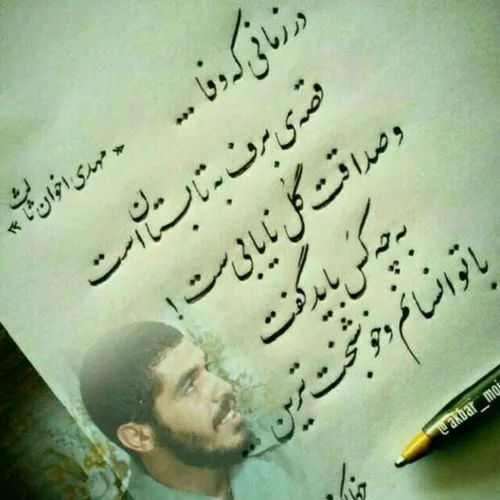 در زمانی که وفا ....
قصه‌ی برف به تابستان است
و صداقت گل نایابی ست !
به چه کس باید گفت
با تو انسانم و خوشبخت ترین ...
« مهدی اخوان ثالث »